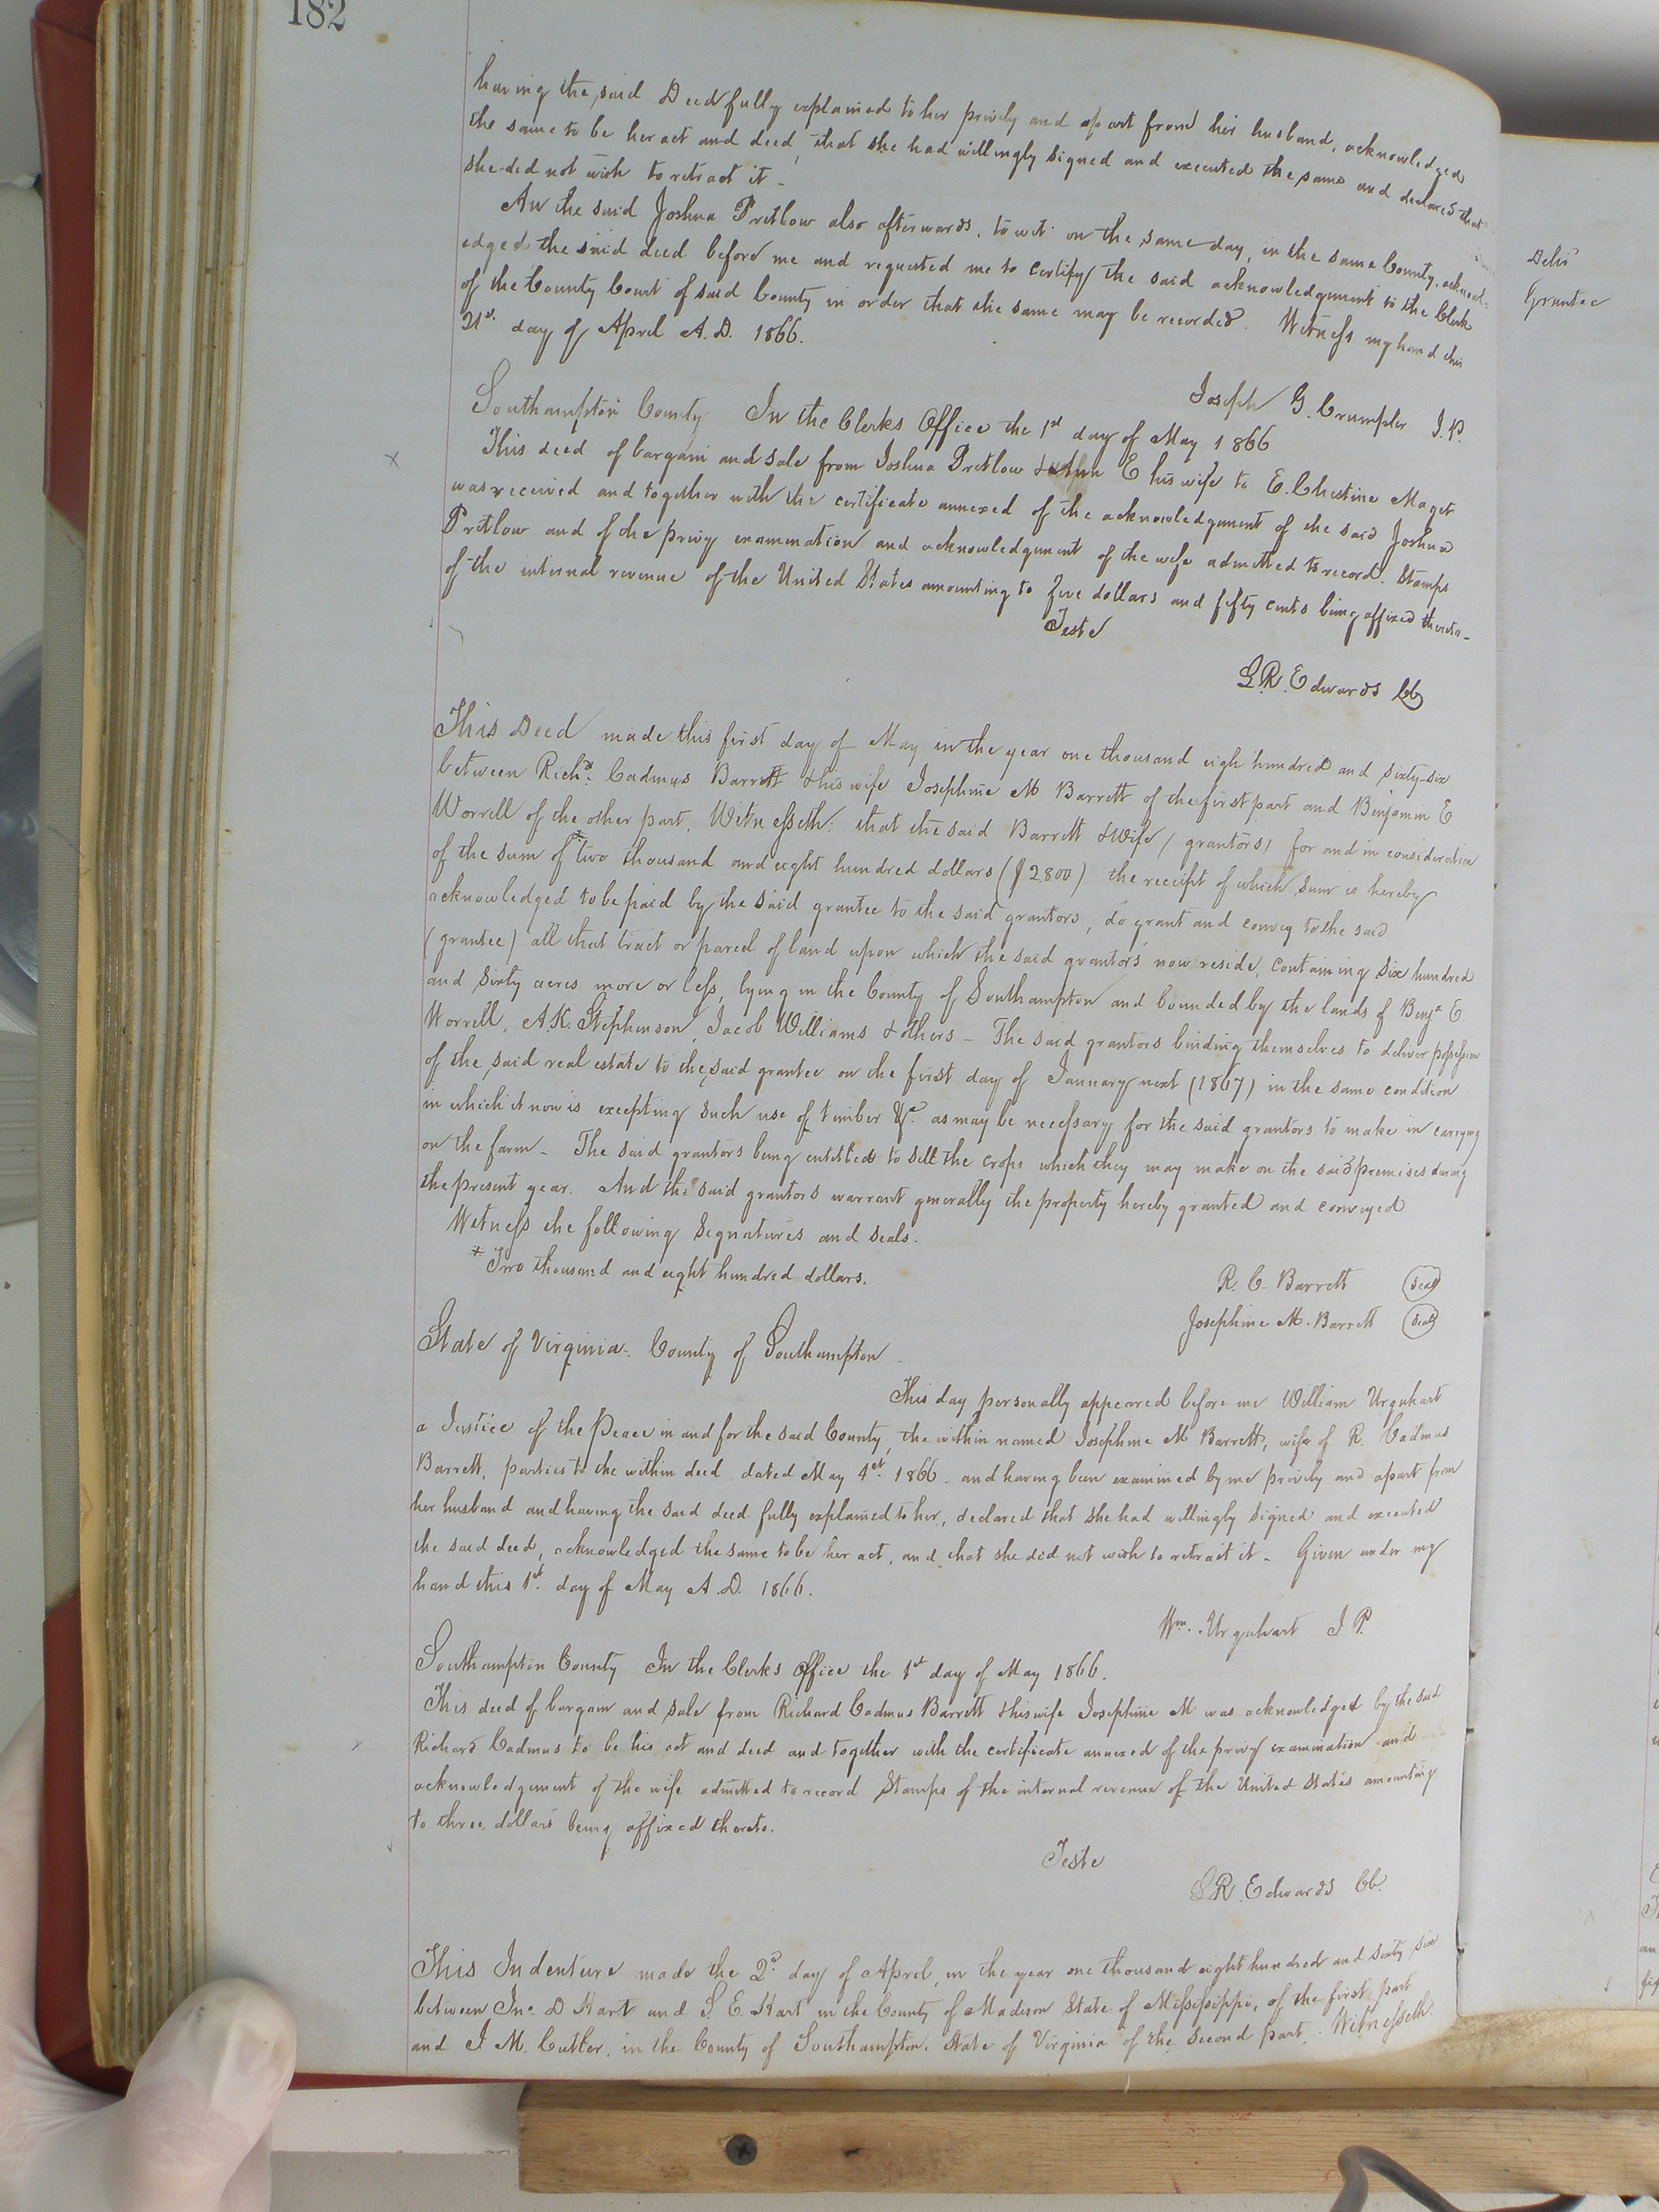 182
having the said Deed fully explained to her privily and apart from her husband, acknowledged
the same to be her act and deed, that she had willingly signed and executed the same and declared that
she did not wish to retract it -
An the said Joshua Pretlow also afterwards, to wit on the same day, in the same County, acknowl-
edged the said deed before me and requested me to certify the said acknowledgment to the Clerk
of the County Court of said County in order that the same may be recorded. Witness my hand this
21st day of April A.D. 1866.
Joseph G. Crumpler J.P.
Southampton County In the Clerks Office the 1st day of May 1866
This deed of bargain and sale from Joshua Pretlow & Ann E his wife to E. Chestine Maget
was received and together with the certificate annexed of the acknowledgment of the said Joshua
Pretlow and of the privy examination and acknowledgment of the wife admitted to record. Stamps
of the internal revenue of the United States amounting to five dollars and fifty cents being affixed thereto -
Teste
L.R. Edwards CC
This Deed made this first day of May in the year one thousand eigh hundred and sixty-six
between Richd. Cadmus Barrett & his wife Josephine M Barrett of the first part and Benjamin E
Worrell of the other part, Witnesseth: that the said Barrett & Wife (grantors) for and in consideration
of the sum of *two thousand and eight hundred dollars ($2800) the receipt of which sum is hereby
acknowledged to be paid by the said grantee to the said grantors, do grant and convey to the said
(grantee) all that tract or parcel of land upon which the said grantors now reside, containing six hundred
and sixty acres more or less, lying in the County of Southampton and bounded by the lands of Benja E.
Worrell, A.K. Stephenson, Jacob Williams & others - The said grantors binding themselves to deliver possession
of the said real estate to the said grantee on the first day of January next (1867) in the same condition
in which it now is excepting such use of timber &c. as may be necessary for the said grantors to make in carrying
on the farm - The said grantors being entitled to sell the crops which they may make on the said premises during
the present year. And the said grantors warrant generally the property hereby granted and conveyed
Witness the following Signatures and seals -
* Two thousand and eight hundred dollars.
R. C. Barrett (Seal)
Josephine M. Barrett (Seal)
State of Virginia. County of Southampton -
This day personally appeared before me William Urquhart
a Justice of the Peace in and for the said County, the within named Josephine M Barrett, wife of R. Cadmus
Barrett, parties to the within deed dated May 1st 1866 - and having been examined by me privily and apart from
her husband and having the said deed fully explained to her, declared that she had willingly signed and executed
the said deed, acknowledged the same to be her act, and that she did not wish to retract it - Given under my
hand this 1st day of May A.D. 1866.
Wm. Urquhart J P.
Southampton County In the Clerks Office the 1st day of May 1866.
This deed of bargain and sale from Richard Cadmus Barrett & his wife Josephine M was acknowledged by the said
Richard Cadmus to be his act and deed and together with the certificate annexed of the privy examination and
acknowledgment of the wife admitted to record Stamps of the internal revenue of the United States amounting
to three dollars being affixed thereto.
Teste
L R. Edwards CC.
This Indenture made the 2d day of April, in the year one thousand eight hundred and sixty six
between Jno. D Hart and S. E Hart in the County of Madison State of Mississippi, of the first part
and J. M. Cutler, in the County of Southampton, State of Virginia of the second part. Witnesseth:
Deld
Grantee